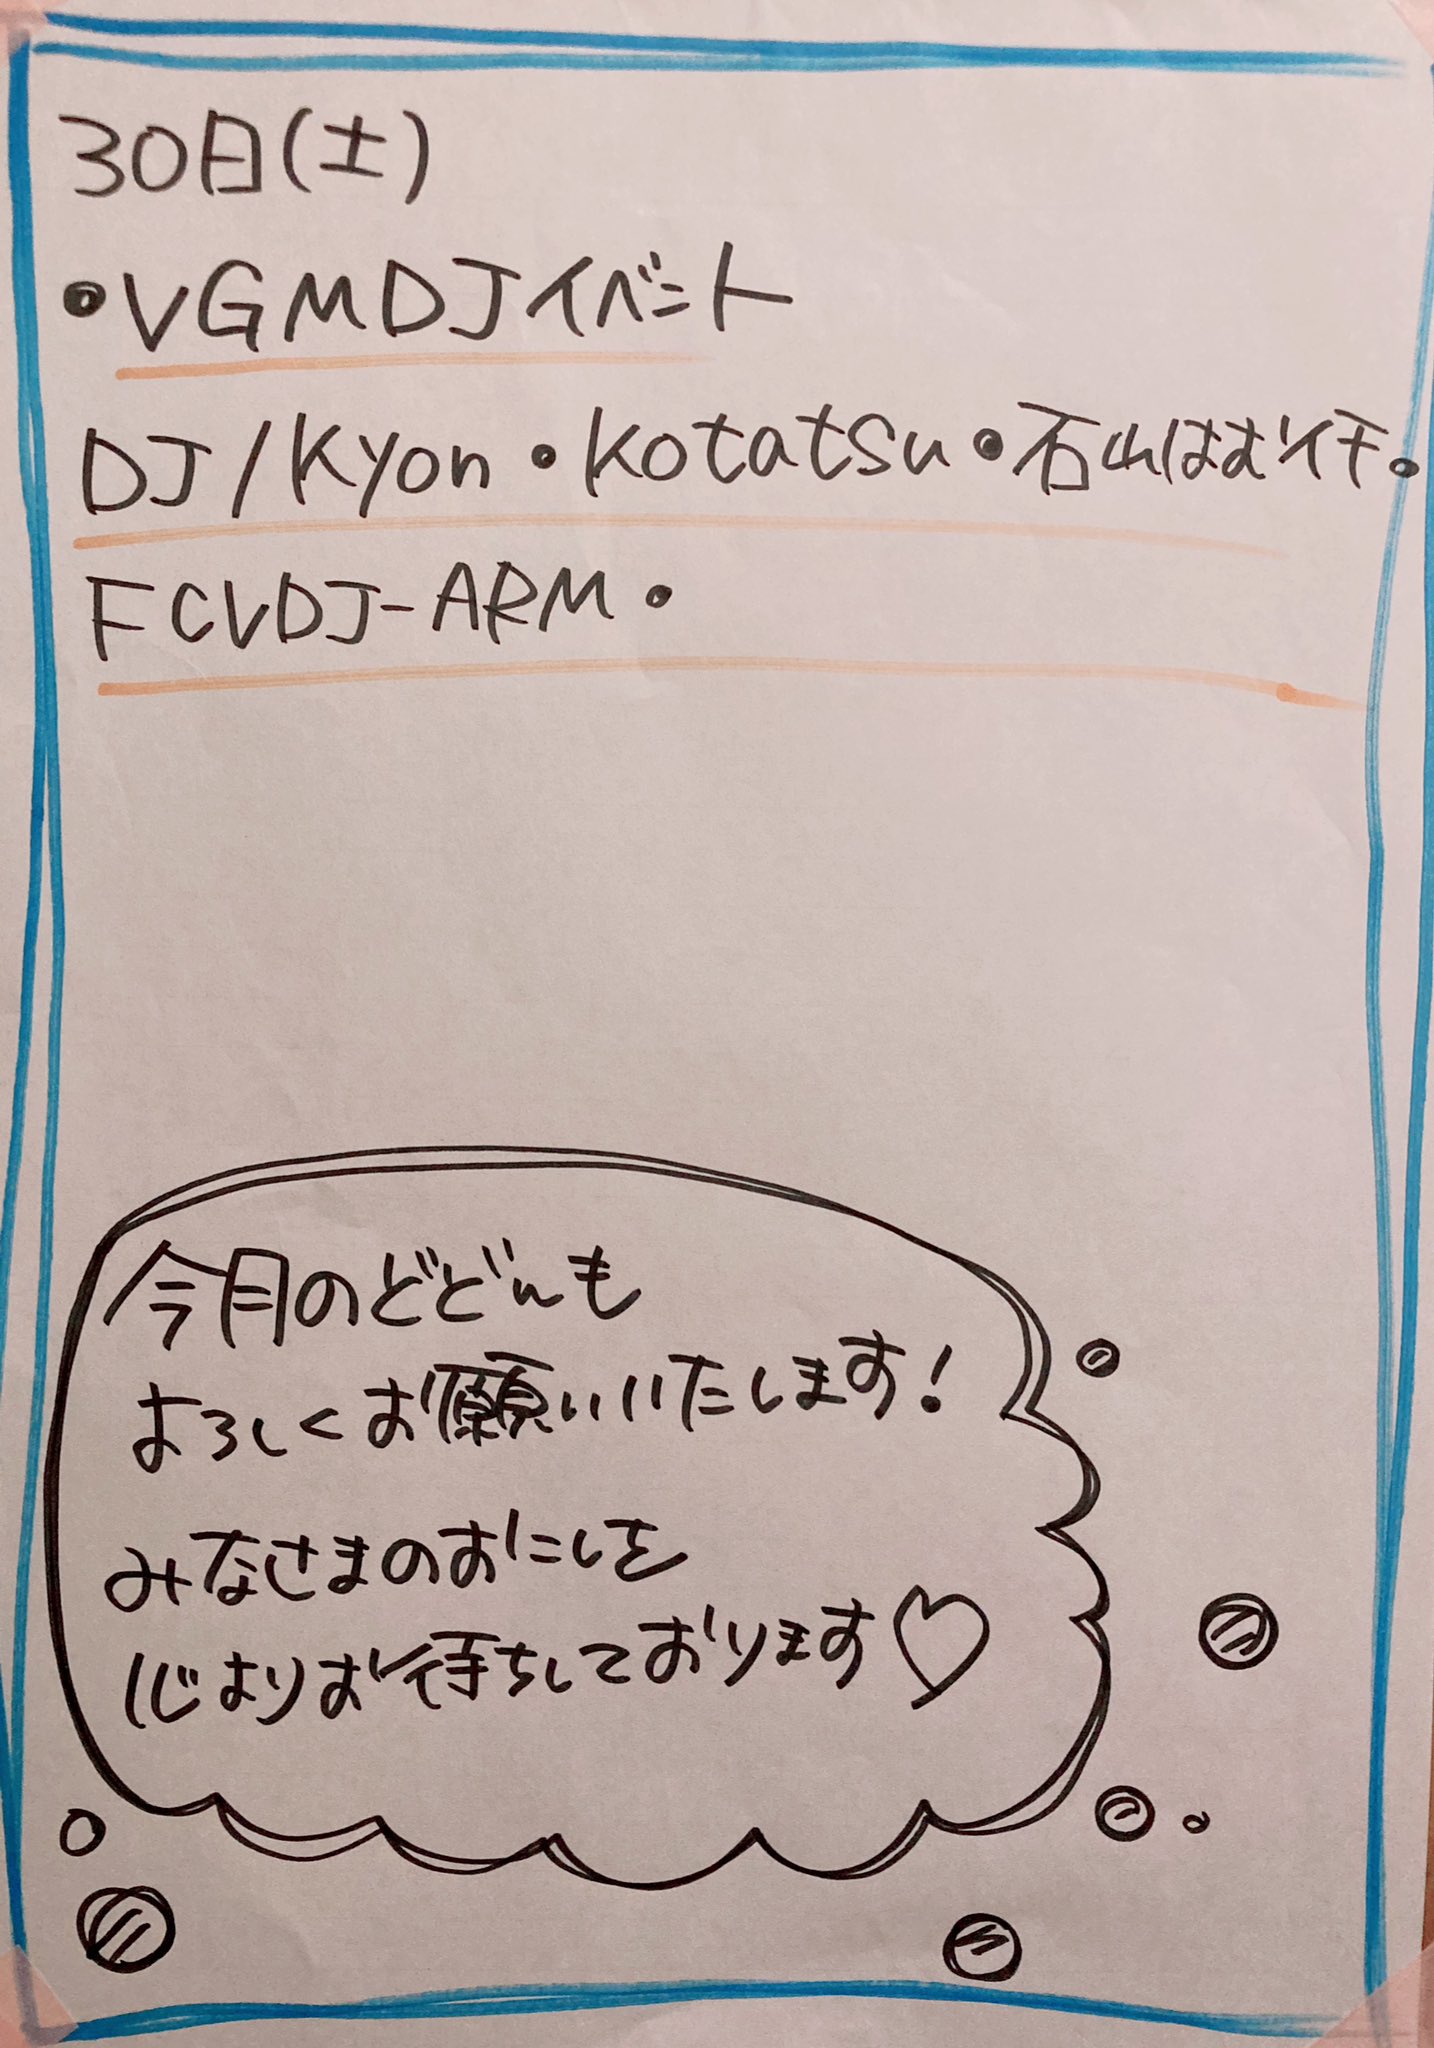 30日(土)
•VGMDJイベント
DJ/Kyon•Kotatsu•石山はむイチ•
FCVDJ-ARM•
今月のどどんも
よろしくお願いいたします!
みなさまのおこしを
心よりお待ちしております♡